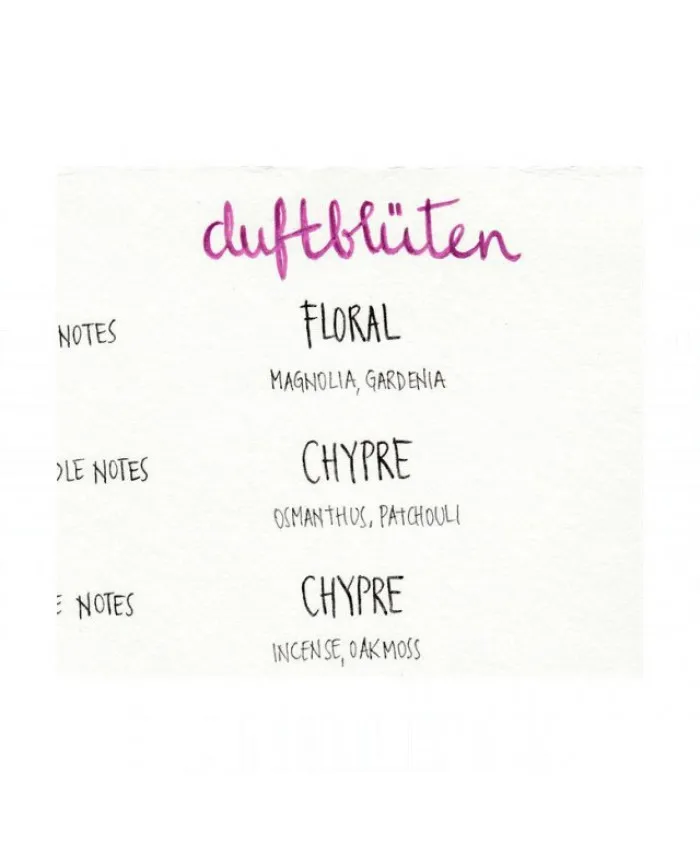 duftblüten
NOTES FLORAL
MAGNOLIA, GARDENIA
DLE NOTES CHYPRE
OSMANTHUS, PATCHOULI
E NOTES CHYPRE
INCENSE, OAKMOSS